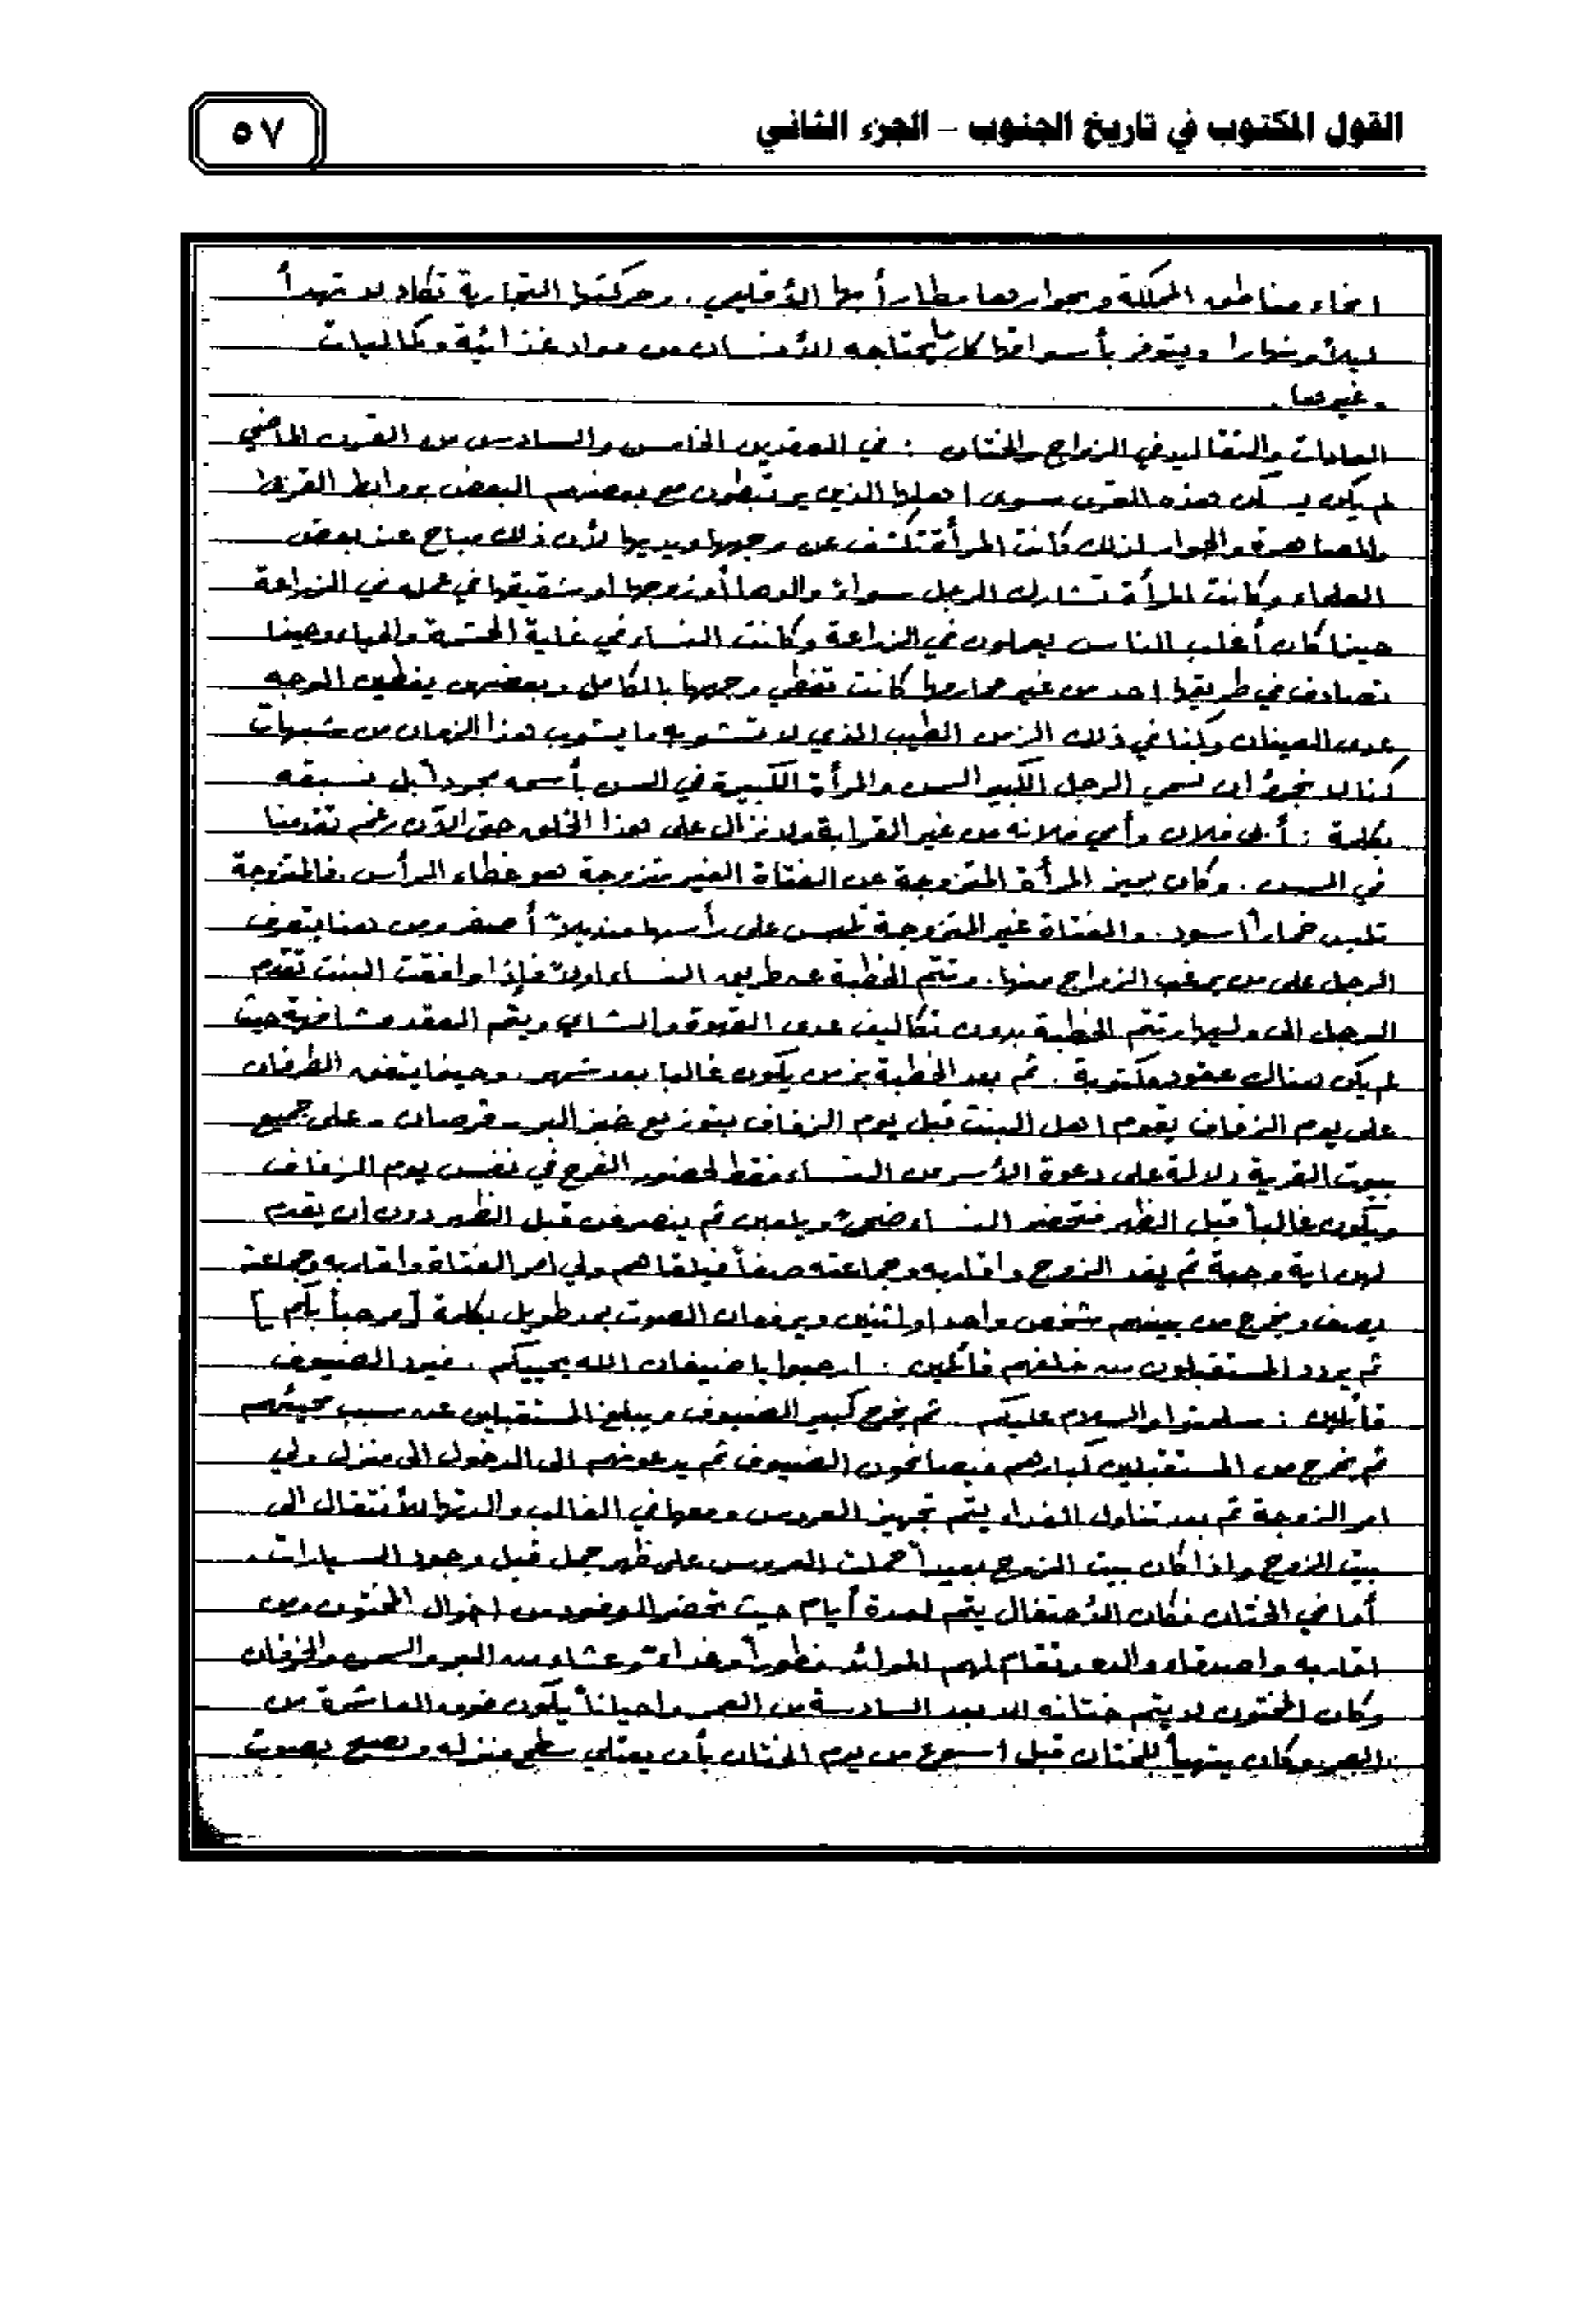 القول المكتوب في تاريخ الجنوب – الجزء الثاني
٥٧
انحاء مناطق المملكة وبجوارها مطار أبها الأقليمي. وحركتها التجارية تكاد لا تهدأ
ليلاً ونهارا ويتوفر بأسواقها كل ما يحتاجه الأنسان من مواد غذائية وكماليات
وغيرها.
العادات والتقاليد في الزواج والختان : في العقدين الخامس والسادس من القرن الماضي
لم يكن يسكن هذه القرى سوى اهلها الذين يرتبطون مع بعضهم البعض بروابط القربى
والمصاهرة والجوار لذلك كانت المرأة تكشف عن وجهها ويديها لأن ذلك مباح عند بعض
العلماء وكانت المرأة تشارك الرجل سواءً والدها أو زوجها او شقيقها في عمله في الزراعة
حينما كان أغلب الناس يعملون في الزراعة وكانت النساء في غاية الحشمة والحياء وحينما
تصادف في طريقها احد من غير محارمها كانت تغطي وجهها بالكامل وبعضهن يغطين الوجه
عدى العينان وكنا في ذلك الزمن الطيب الذي لا تشوبه ما يشوب هذا الزمان من شبهات
كنا لا نجرؤ ان نسمي الرجل الكبير السن والمرأة الكبيرة في السن بأسمه مجرداً بل نسبقه
بكلمة : أبي فلان وأمي فلانه من غير القرابة ولا نزال على هذا الخلق حتى الآن رغم تقدمنا
في السن. وكان يميز المرأة المتزوجة عن الفتاة الغير متزوجة هو غطاء الرأس. فالمتزوجة
تلبس خماراً اسود. والفتاة غير المتزوجة تلبس على رأسها منديلاً أصفر ومن هنا يتعرف
الرجل على من يرغب الزواج منها. وتتم الخطبة عن طريق النساء اولاً فإذا وافقت البنت تقدم
الرجل الى وليها وتتم الخطبة بدون تكاليف عدى القهوة والشاي ويتم العقد مشافهة حيث
لم يكن هناك عقود مكتوبة. ثم بعد الخطبة بزمن يكون غالبا بعد شهر. وحينما يتفق الطرفان
على يوم الزفاف يقوم اهل البنت قبل يوم الزفاف بتوزيع خبز البر - قرصان - على جميع
بيوت القرية دلالة على دعوة الأسر من النساء فقط لحضور الفرح في نفس يوم الزفاف
ويكون غالباً قبل الظهر فتحضر النساء ضحىً ويلعبن ثم ينصرفن قبل الظهر دون ان يقدم
لهن اية وجبة ثم يفد الزوج واقاربه وجماعته صفاً فيلقاهم ولي امر الفتاة واقاربه وجماعته
بصف ويخرج من بينهم شخص واحد او اثنين ويرفعان الصوت بمد طويل بكلمة [مرحباً بكم]
ثم يردد المستقبلون من خلفهم قائلين : ارحبوا يا ضيفان الله يحييكم. فيرد الضيوف
قائلين : سلمتوا والسلام عليكم. ثم يخرج كبير الضيوف ويبلغ المستقبلين عن سبب مجيئهم
ثم يخرج من المستقبلين كبارهم فيصافحون الضيوف ثم يدعونهم الى الدخول الى منزل ولي
امر الزوجة ثم بعد تناول الغداء يتم تجهيز العروس ومعها في الغالب والدتها للأنتقال الى
بيت الزوج واذا كان بيت الزوج بعيداً حملت العروس على ظهر جمل قبل وجود السيارات.
أما في الختان فكان الأحتفال يتم لمدة أيام حيث تحضر الوفود من اخوال المختون ومن
اقاربه واصدقاء والده وتقام لهم الموائد فطوراً وغداءً وعشاء من البر والسمن والخرفان
وكان المختون لا يتم ختانه الا بعد السادسة من العمر واحياناً يكون فوق العاشرة من
العمر وكان يتهيأ للختان قبل اسبوع من يوم الختان بأن يعتلي سطح منزله ويصيح بصوت